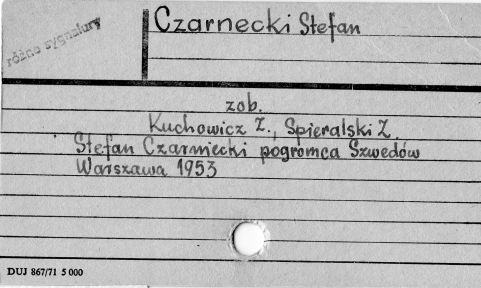 różne sygnatury
Czarnecki Stefan
zob.
Kuchowicz Z., Spieralski Z.
Stefan Czarniecki pogromca Szwedów
Warszawa 1953
DUJ 867/71 5 000